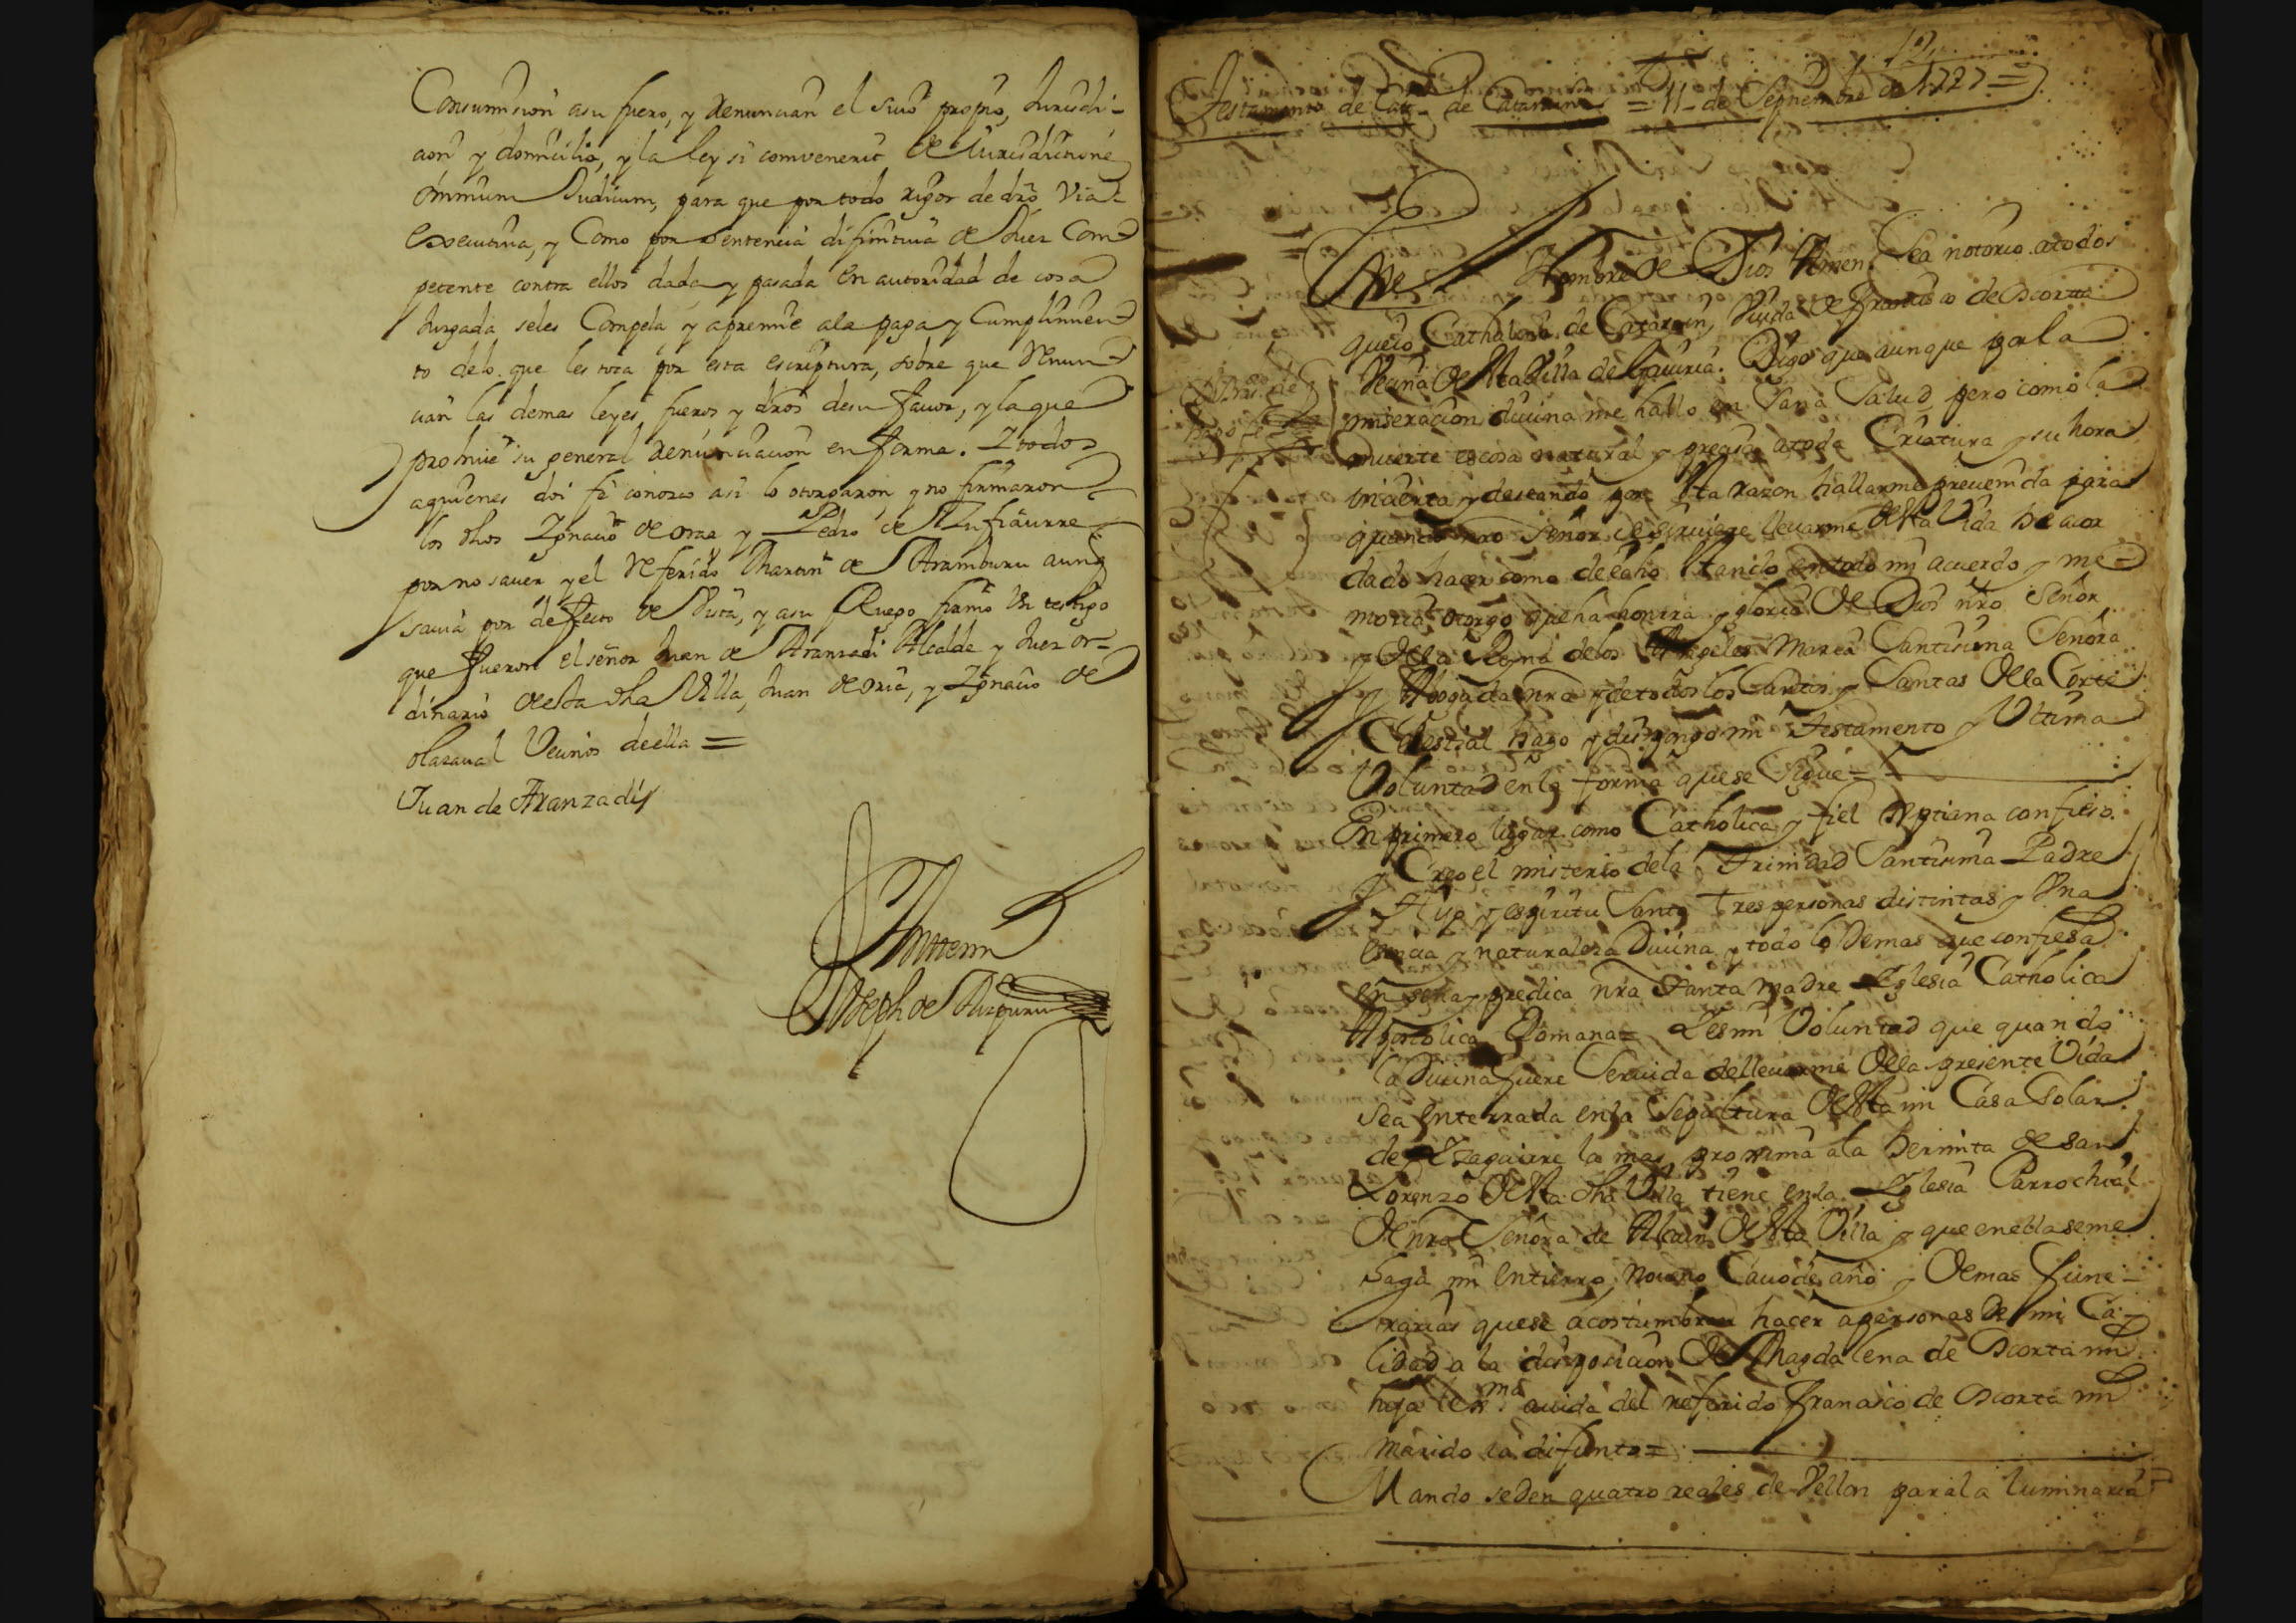 Consumision asu fuero, y Renunciañ el Suio propio, Jurisdi-
cion y domicilio, y la ley si combenerit de Jurisdictione
omnium Judicum, para que por todo rigor de dro Via-
executiva, y Como por sentencia difinitiva de Juez Com-
petente contra ellos dada y pasada en autoridad de cosa
Juzgada seles Compela y apremie ala paga y Cumplimien-
to delo que les toca por esta escriptura, sobre que Renun-
cian las demas leyes, fueros y dros desu favor, y la que
prohiue su general Renunciacion en forma. Ytodos
aquienes doi fe conozco asi lo otorgaron y no firmaron
los dhos Ygnacio de orza y Pedro de Ynsiaurre
por no sauer y el Referido Martin de Aramburu aunq
sauia por defecto de Vista, y asu Ruego firmo Un testigo
que fueron el señor Juan de Aranzadi Alcalde y Juez or-
dinario desta dha Villa, Juan de oria, y Ygnacio de
olazaual Vecinos deella =
Juan de Aranzadi
Antemi
Joseph de Aizpuru
12
Testamento de Cath. de Catarain = 11 de Septiembre de 1727 =
En el Nombre de Dios Amen. Sea notorio atodos
queio Catholina de Catarain, Viuda de Francisco de Scorta
Vecina desta Villa de Gauiria. Digo que aunque por la
miseracion diuina me hallo en Sana Salud pero como la
muerte es cosa natural y precisa atoda Criatura y su hora
incierta y deseando por esta razon hallarme preuenida para
quando nro Señor se siruiere lleuarme desta Vida he acor
dado hacer como de echo estando entodo mi acuerdo y me-
moria otorgo que ha honrra y gloria de Dios nro Señor
y dela Reyna delos Angeles Maria Santisima Señora
y Abogada nra y detodos los Santos y Santas dela Corte
Celestial hago y dispongo mi Testamento y Ultima
Voluntad enla forma que se Sigue =
En primero lugar como Catholica y fiel Xptiana confieso
y Creo el misterio dela Trinidad Santisima Padre
Hijo y espiritu Santo Tres personas distintas y Vna
esencia y naturaleza Diuina y todo lo Demas que confiesa
enseña y predica nra Santa madre Yglesia Catholica
Apostolica Romana = Yes mi Voluntad que quando
la Diuina fuere Seruida delleuarme dela presente Vida
sea enterrada enla Sepultura desta mi Casa Solar
de Yzaguirre la mas proxima ala hermita de san
Lorenzo desta dha Villa tiene enla Yglesia Parrochial
de nra Señora de Alcain desta Villa y que enella se me
haga mi entierro, noueno Cauo de año y demas fune-
rarias quese acostumbran hacer apersonas de mi Ca-
lidad a la disposicion de Magdalena de Scorta mi
hija lexma auida del referido Francisco de Scorta mi
marido ia difunto =
Mando seden quatro reales de Vellon parala luminaria